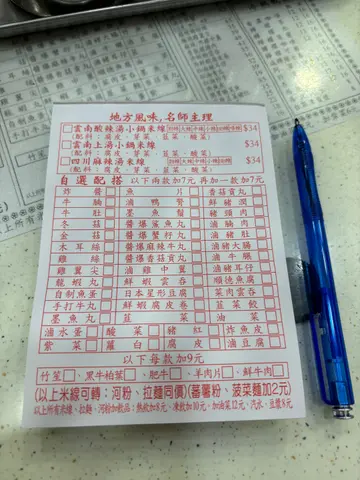 地方風味,名師主理
雲南酸辣湯小鍋米線 $34
(配料:腐皮、芽菜、韮菜、酸菜)
雲南上湯小鍋米線 $34
(配料:腐皮、芽菜、韮菜、酸菜)
四川麻辣湯米線 $34
(配料:腐皮、芽菜、韮菜、酸菜)
自選配搭 以下兩款加7元 再加一款加7元
炸醬 魚片 香菇貢丸
牛腩 滷鴨腎 鮮豬潤
牛肚 墨魚鬚 豬頸肉
冬菇 醬爆鯊魚丸 滷腩肉
金菇 醬爆蟹籽丸 滷豬肚
木耳絲 醬爆麻辣牛丸 滷豬大腸
雞絲 醬爆香菇貢丸 滷牛𦟌
雞翼尖 滷雞中翼 滷豬耳仔
龍蝦丸 鮮蝦雲吞 順德魚腐
自制魚蛋 日本星形豆腐 菜肉雲吞
手打牛丸 鮮蝦腐皮卷 韮菜餃
墨魚丸 韮菜 油菜
滷水蛋 酸菜 豬紅 炸魚皮
紫菜 蘿白 腐皮 滷豆腐
以下每款加9元
竹笙 黑牛柏葉 肥牛 羊肉片 鮮牛肉
(以上米線可轉:河粉、拉麵同價)(蕃薯粉、菠菜麵加2元)
以上所有米線、拉麵、河粉加飲品:熱飲加8元、凍飲加10元、加油菜12元、汽水、豆漿8元